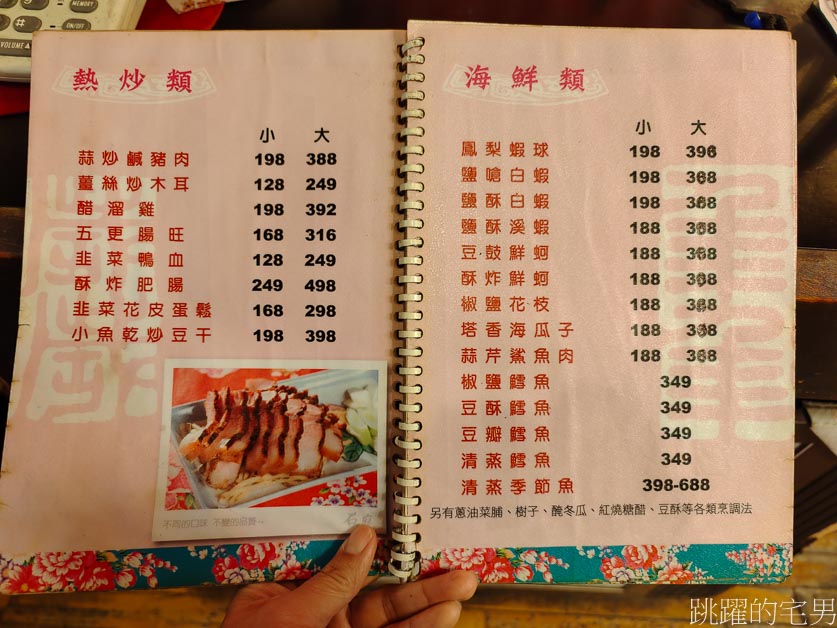 MEMORY
ON/OFF
VOLUME
熱炒類
小 大
蒜炒鹹豬肉 198 388
薑絲炒木耳 128 249
醋溜雞 198 392
五更腸旺 168 316
韭菜鴨血 128 249
酥炸肥腸 249 498
韭菜花皮蛋鬆 168 298
小魚乾炒豆干 198 398
不同的口味 不變的品質~
海鮮類
小 大
鳳梨蝦球 198 396
鹽嗆白蝦 198 368
鹽酥白蝦 198 368
鹽酥溪蝦 188 368
豆鼓鮮蚵 188 368
酥炸鮮蚵 188 368
椒鹽花枝 188 368
塔香海瓜子 188 368
蒜芹鯊魚肉 188 368
椒鹽鱈魚 349
豆酥鱈魚 349
豆瓣鱈魚 349
清蒸鱈魚 349
清蒸季節魚 398-688
另有蔥油菜脯、樹子、醃冬瓜、紅燒糖醋、豆酥等各類烹調法
跳躍的宅男